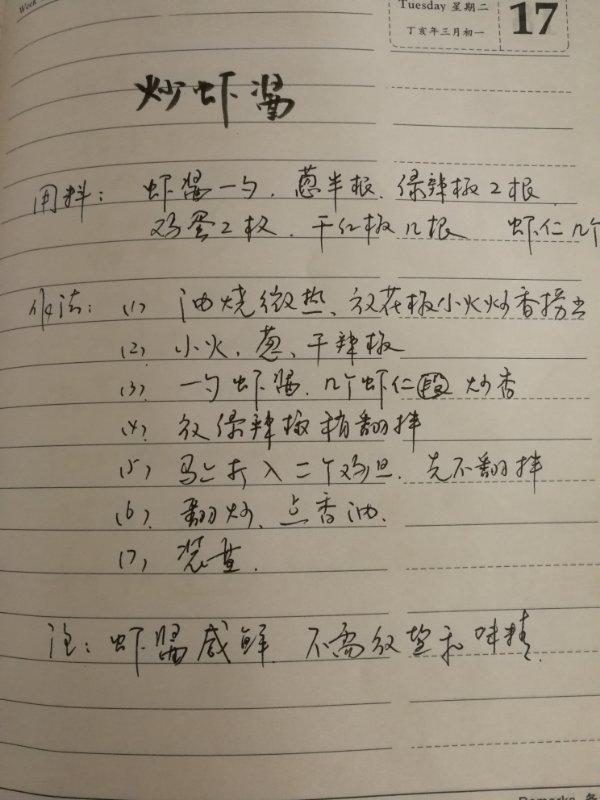 Week
Tuesday 星期二
17
丁亥年三月初一
炒虾酱
用料: 虾酱一勺. 葱半根. 绿辣椒2根
鸡蛋2枚. 干红椒几根 虾仁几个
做法: (1) 油烧微热、放花椒小火炒香捞出
(2) 小火、葱、干辣椒
(3) 一勺虾酱. 几个虾仁段 炒香
(4) 放绿辣椒稍翻拌
(5) 马上打入二个鸡旦. 先不翻拌
(6) 翻炒、点香油.
(7) 装盘.
注: 虾酱咸鲜. 不需放盐和味精.
Remarks 备